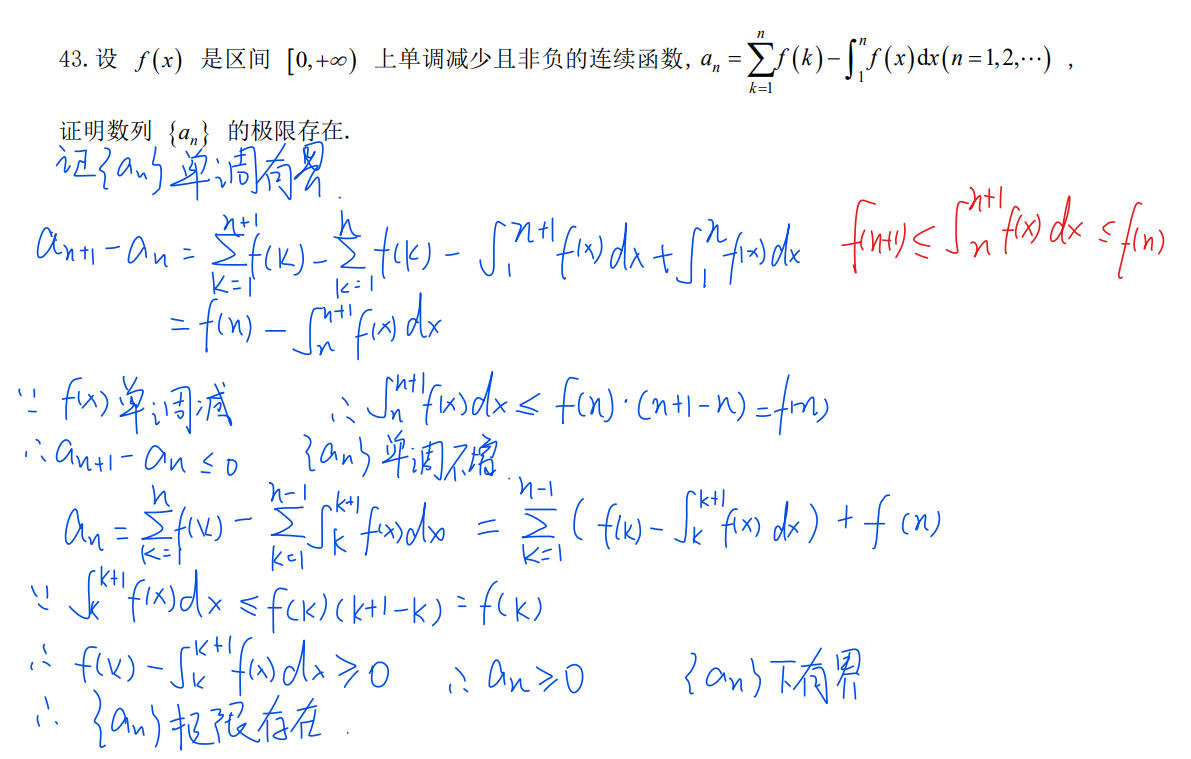 43. 设 f(x) 是区间 [0,+∞) 上单调减少且非负的连续函数, a_n = ∑_{k=1}^{n} f(k) − ∫_1^n f(x)dx (n=1,2,⋯) ,
证明数列 {a_n} 的极限存在.
证{a_n}单调有界.
a_{n+1} − a_n = ∑_{k=1}^{n+1} f(k) − ∑_{k=1}^{n} f(k) − ∫_1^{n+1} f(x)dx + ∫_1^n f(x)dx
f(n+1) ≤ ∫_n^{n+1} f(x)dx ≤ f(n)
= f(n) − ∫_n^{n+1} f(x)dx
∵ f(x)单调减 ∴ ∫_n^{n+1} f(x)dx ≤ f(n)·(n+1−n) = f(n)
∴ a_{n+1} − a_n ≤ 0 {a_n}单调不增.
a_n = ∑_{k=1}^{n} f(k) − ∑_{k=1}^{n−1} ∫_k^{k+1} f(x)dx = ∑_{k=1}^{n−1} ( f(k) − ∫_k^{k+1} f(x)dx ) + f(n)
∵ ∫_k^{k+1} f(x)dx ≤ f(k)(k+1−k) = f(k)
∴ f(k) − ∫_k^{k+1} f(x)dx ≥ 0 ∴ a_n ≥ 0 {a_n}下有界
∴ {a_n}极限存在.